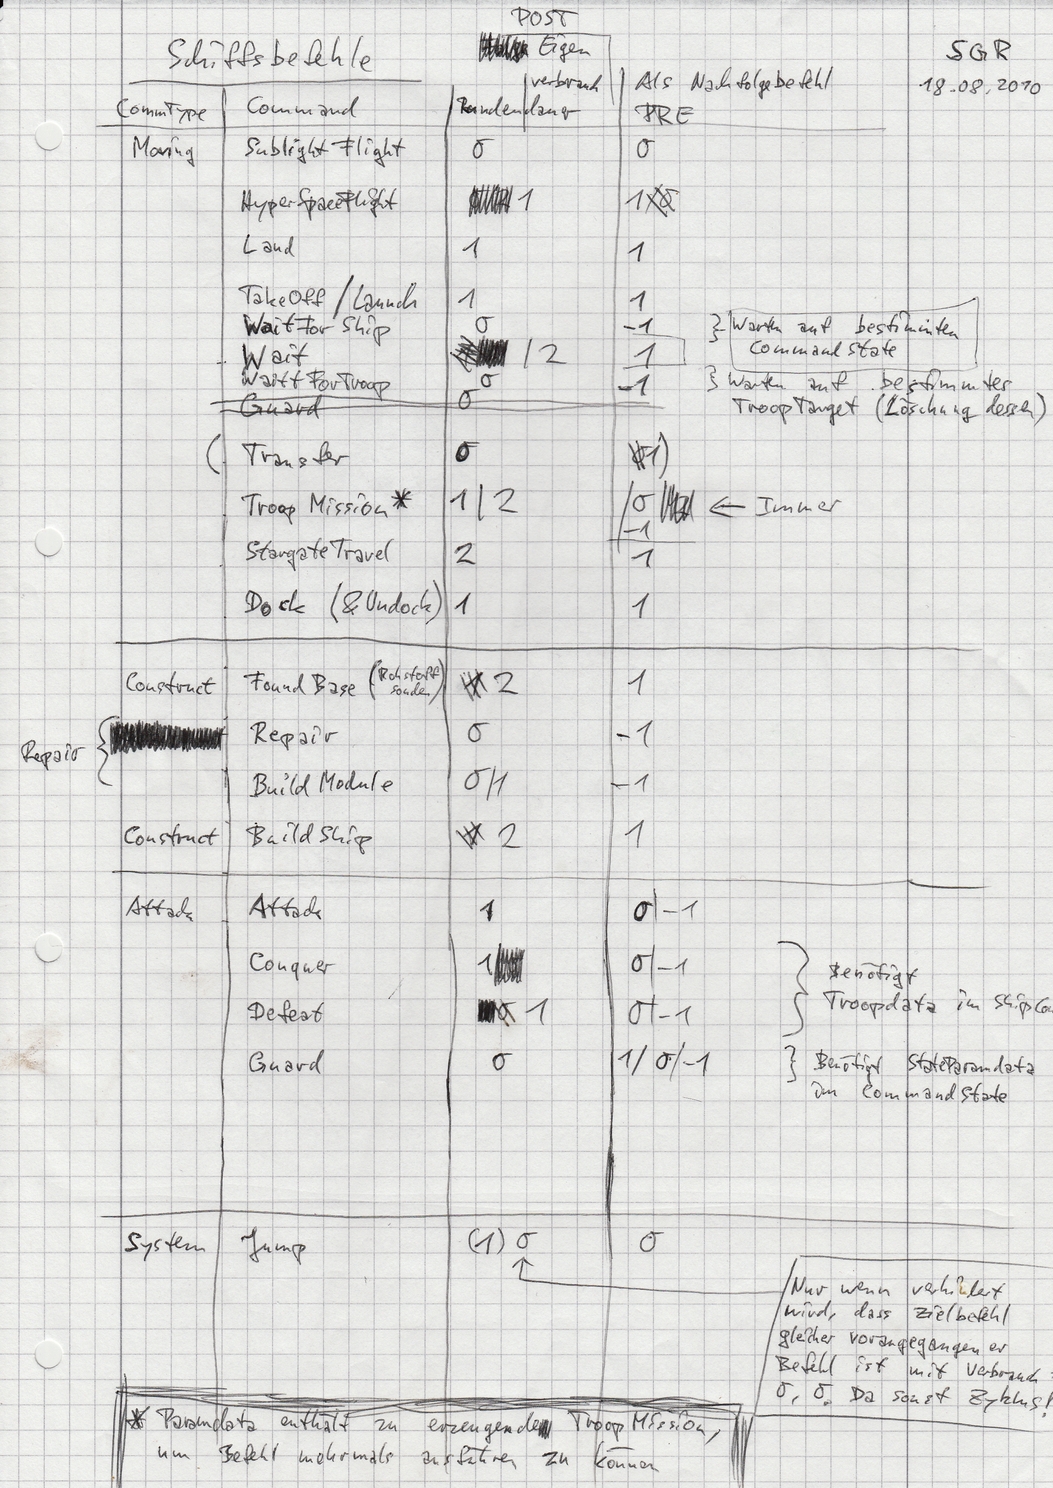 POST
Schiffsbefehle Eigen SGR
verbrauch Als Nachfolgebefehl 18.08.2010
CommType Command Rundendauer PRE
Moving Sublight Flight 0 0
HyperSpaceFlight 1 1
Land 1 1
TakeOff / Launch 1 1
WaitForShip 0 -1 } Warten auf bestimmten
Wait / 2 1 CommandState
WaitForTroop 0 -1 } Warten auf bestimmtes
Guard 0 TroopTarget (Löschung dessen)
( Transfer 0 1)
Troop Mission* 1/2 /0 ← Immer
-1
StargateTravel 2 1
Dock (& Undock) 1 1
Construct Found Base (Rohstoff 2 1
sonden)
Repair { Repair 0 -1
Build Module 0/1 -1
Construct Build Ship 2 1
Attack Attack 1 0/-1
Conquer 1 0/-1 } Benötigt
Defeat 1 0/-1 Troopdata im ShipCom
Guard 0 1/0/-1 } Benötigt StateParamdata
im CommandState
System Jump (1) 0 0
Nur wenn verhindert
wird, dass Zielbefehl
gleicher vorangegangener
Befehl ist mit Verbrauch
0, 0. Da sonst Zyklus!
* Paramdata enthält zu erzeugende Troop Mission,
um Befehl mehrmals ausführen zu können